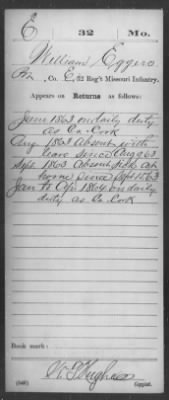 E 32 Mo.
William Eggers
Co. C, 32 Reg't Missouri Infantry.
Appears on Returns as follows:
June 1863 on daily duty
as Co. Cook
Aug 1863 Absent with
leave since Aug 2 63
Sept. 1863 Absent sick at
home since Sept 15, 63
Jan to Apr 1864 on daily
duty as Co. Cook
Book mark:
(546)
Copyist.